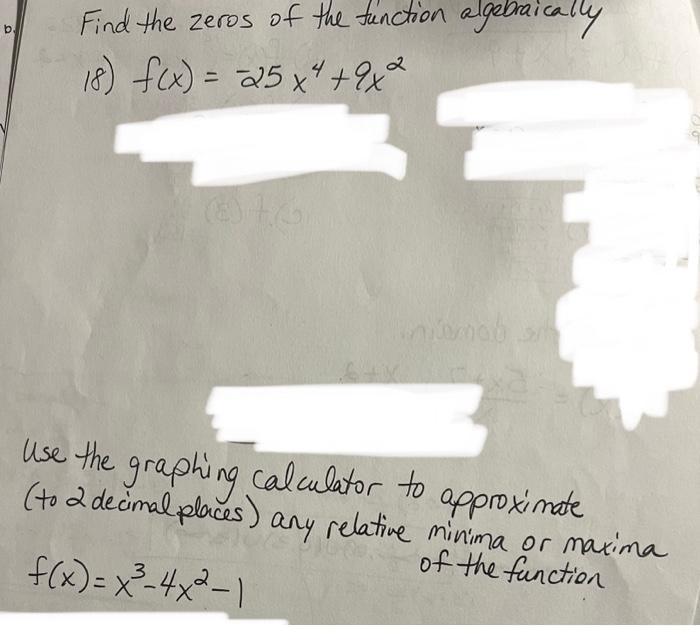 b.
Find the zeros of the function algebraically
18) f(x) = -25x⁴ + 9x²
Use the graphing calculator to approximate
(to 2 decimal places) any relative minima or maxima
of the function
f(x) = x³ - 4x² - 1